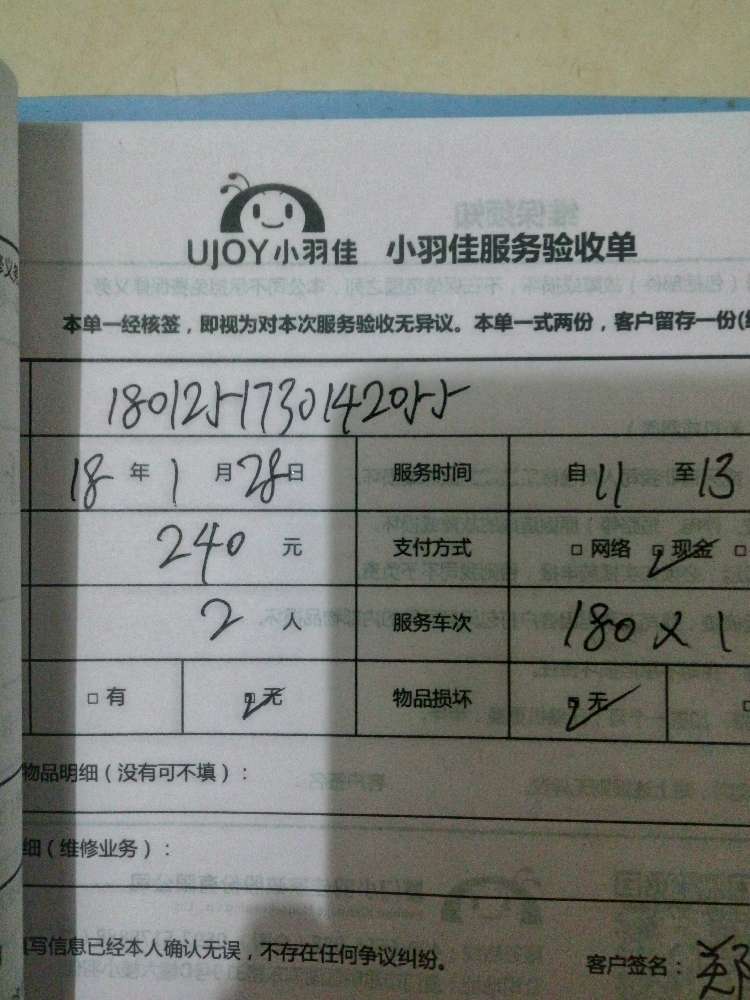 UJOY小羽佳 小羽佳服务验收单
本单一经核签，即视为对本次服务验收无异议。本单一式两份，客户留存一份
1801251730142055
18 年 1 月 28 日 服务时间 自 11 至 13
240 元 支付方式 □ 网络 □ 现金 □
2 人 服务车次 180 X 1
□ 有 □ 无 物品损坏 □ 无
物品明细（没有可不填）：
细（维修业务）：
写信息已经本人确认无误，不存在任何争议纠纷。
客户签名：郑